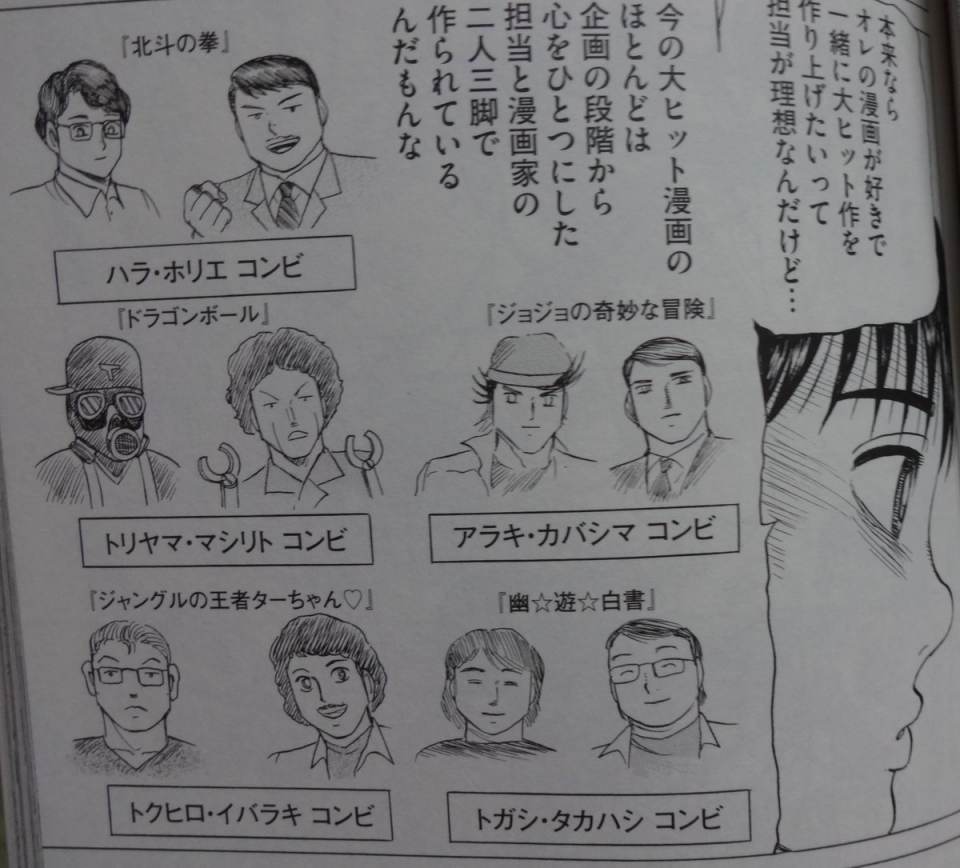 本来なら
オレの漫画が好きで
一緒に大ヒット作を
作り上げたいって
担当が理想なんだけど…
今の大ヒット漫画の
ほとんどは
企画の段階から
心をひとつにした
担当と漫画家の
二人三脚で
作られている
んだもんな
『北斗の拳』
ハラ・ホリエ コンビ
『ジョジョの奇妙な冒険』
アラキ・カバシマ コンビ
『ドラゴンボール』
トリヤマ・マシリト コンビ
『幽☆遊☆白書』
トガシ・タカハシ コンビ
『ジャングルの王者ターちゃん♡』
トクヒロ・イバラキ コンビ